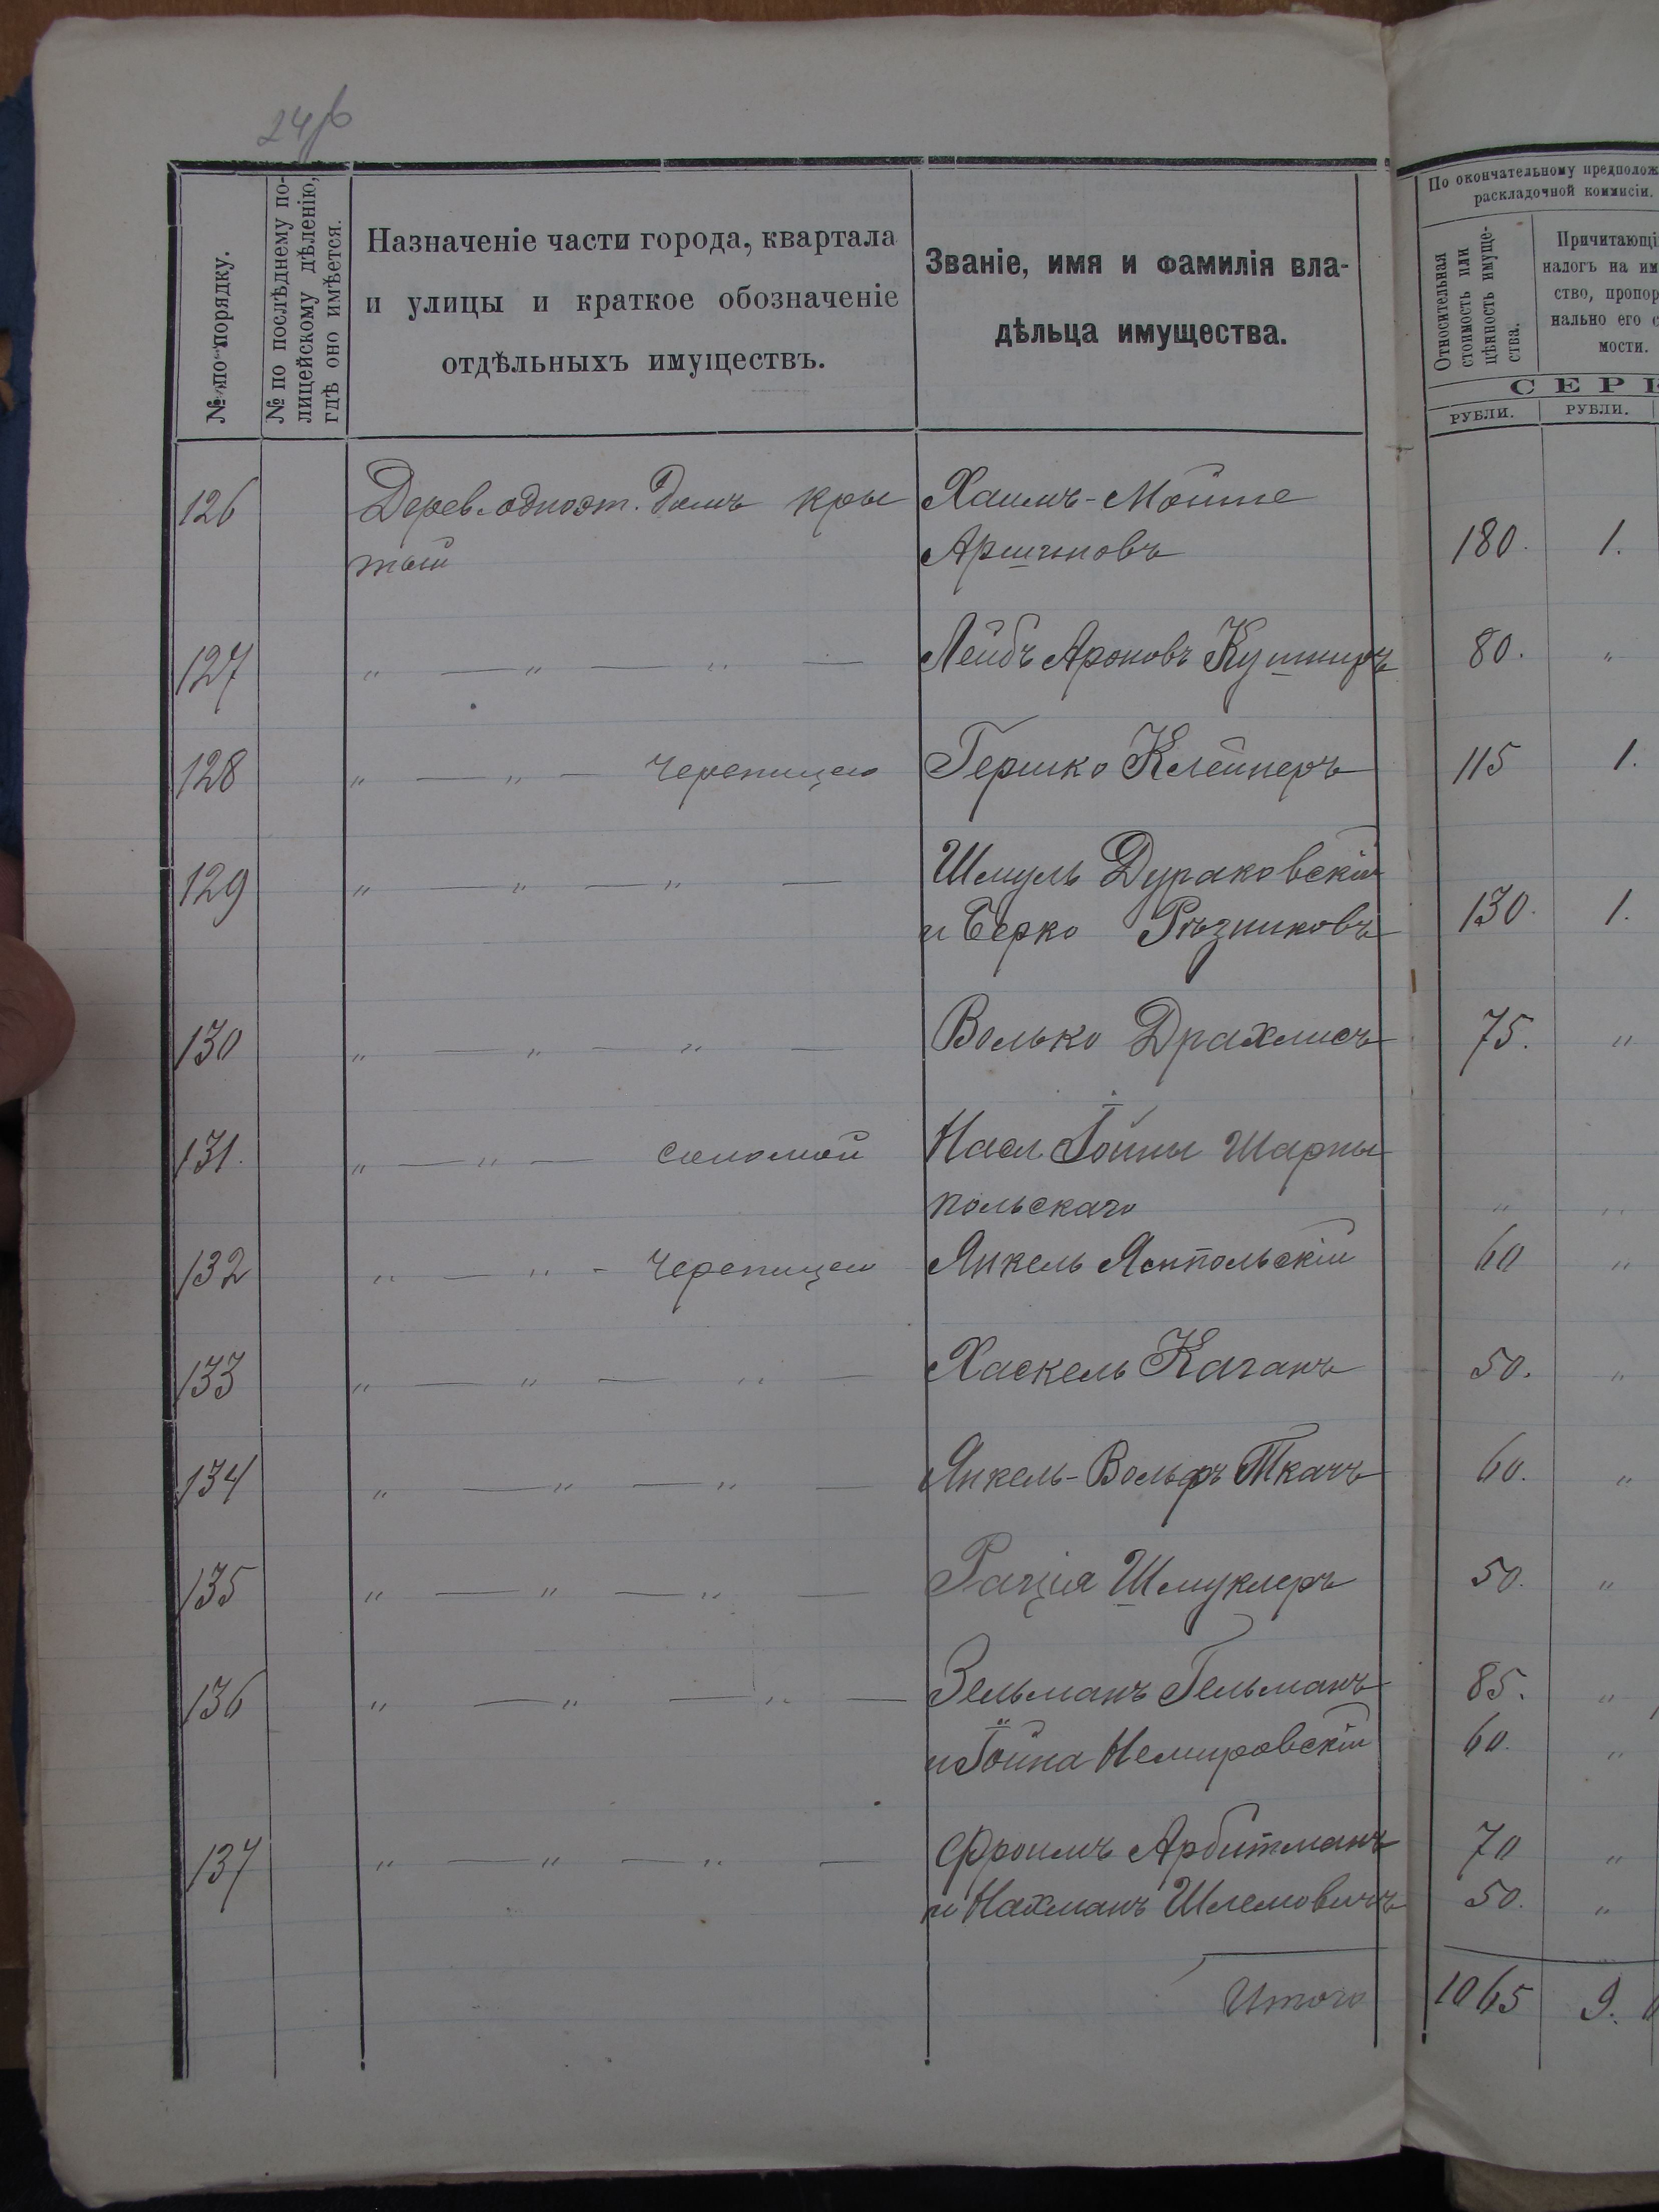 24об
№ по порядку.
№ по послѣднему по-
лицейскому дѣленію,
гдѣ оно имѣется.
Назначеніе части города, квартала
и улицы и краткое обозначеніе
отдѣльныхъ имуществъ.
Званіе, имя и фамилія вла-
дѣльца имущества.
По окончательному предполож
раскладочной коммисіи.
Относительная
стоимость или
цѣнность имуще-
ства.
Причитающі
налогъ на им
ство, пропор
нально его с
мости.
СЕРЕ
РУБЛИ. РУБЛИ.
126 Дерев. одноэт. домъ кры Хаимъ-Мойше
тый Аршиновъ 180. 1.
127 " — " — " — Лейбъ Ароновъ Кушниръ 80. "
128 " — " — черепицею Гершко Клейнеръ 115 1.
129 " — " — " — Шмуль Дураковскій
и Берко Рѣзниковъ 130. 1.
130 " " — " — Волько Драхлисъ 75. "
131. " — " — соломой Насл Іойны Шарпы
польскаго " "
132 " — " - черепицею Янкель Ямпольскій 60 "
133 " — " — " — Хаскель Каганъ 50. "
134 " — " — " — Янкель-Вольфъ Ткачъ 60. "
135 " — " — " — Рація Шмуклеръ 50. "
136 " — " — " — Зельманъ Гельманъ 85. "
и Іойна Немировскій 60. "
137 " — " — " — Фроимъ Арбитманъ 70 "
и Нахманъ Шлемовичъ 50. "
Итого 1065 9.